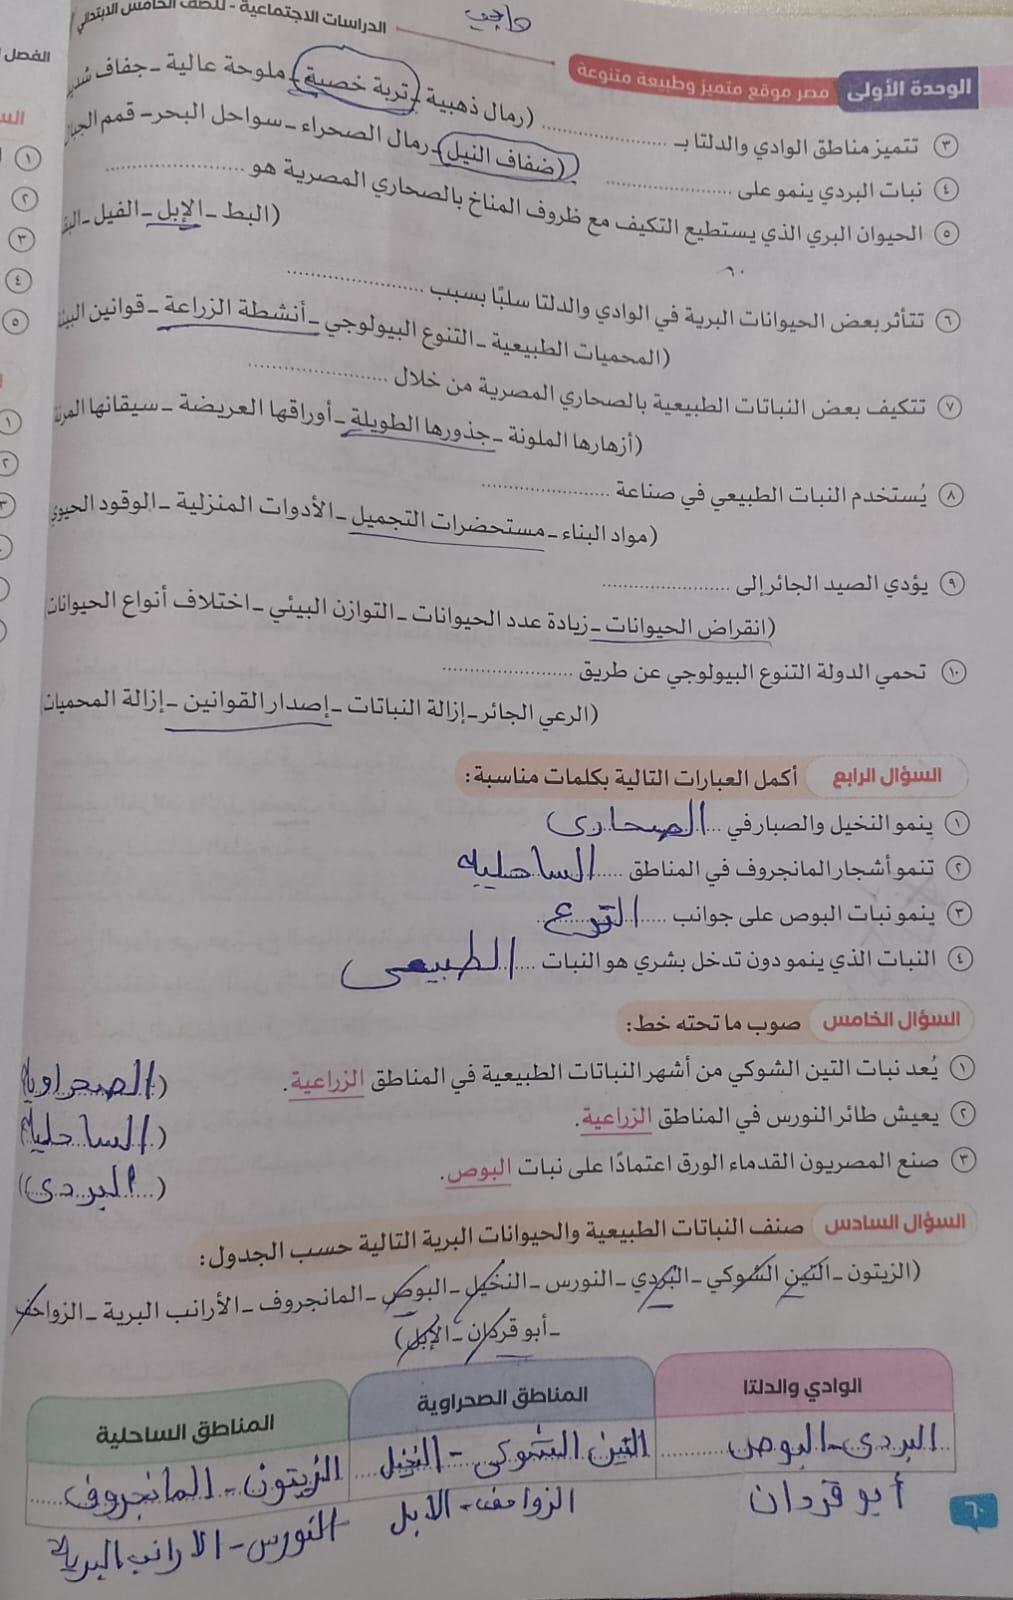 واجب
الدراسات الاجتماعية - للصف الخامس الابتدائي
الفصل
الوحدة الأولى مصر موقع متميز وطبيعة متنوعة
٣ تتميز مناطق الوادي والدلتا بـ ............ (رمال ذهبية - تربة خصبة - ملوحة عالية - جفاف
٤ نبات البردي ينمو على ............ (ضفاف النيل - رمال الصحراء - سواحل البحر - قمم الجبال
٥ الحيوان البري الذي يستطيع التكيف مع ظروف المناخ بالصحاري المصرية هو ............
(البط - الإبل - الفيل -
٦٠
٦ تتأثر بعض الحيوانات البرية في الوادي والدلتا سلبًا بسبب ............
(المحميات الطبيعية - التنوع البيولوجي - أنشطة الزراعة - قوانين
٧ تتكيف بعض النباتات الطبيعية بالصحاري المصرية من خلال ............
(أزهارها الملونة - جذورها الطويلة - أوراقها العريضة - سيقانها
٨ يُستخدم النبات الطبيعي في صناعة ............
(مواد البناء - مستحضرات التجميل - الأدوات المنزلية - الوقود الحيوي
٩ يؤدي الصيد الجائر إلى ............
(انقراض الحيوانات - زيادة عدد الحيوانات - التوازن البيئي - اختلاف أنواع الحيوانات
١٠ تحمي الدولة التنوع البيولوجي عن طريق ............
(الرعي الجائر - إزالة النباتات - إصدار القوانين - إزالة المحميات
السؤال الرابع أكمل العبارات التالية بكلمات مناسبة:
١ ينمو النخيل والصبار في ... الصحارى
٢ تنمو أشجار المانجروف في المناطق ... الساحلية
٣ ينمو نبات البوص على جوانب ... الترع
٤ النبات الذي ينمو دون تدخل بشري هو النبات ... الطبيعى
السؤال الخامس صوب ما تحته خط:
١ يُعد نبات التين الشوكي من أشهر النباتات الطبيعية في المناطق الزراعية. (الصحراوية)
٢ يعيش طائر النورس في المناطق الزراعية. (الساحلية)
٣ صنع المصريون القدماء الورق اعتمادًا على نبات البوص. (البردى)
السؤال السادس صنف النباتات الطبيعية والحيوانات البرية التالية حسب الجدول:
(الزيتون - التين الشوكي - البردي - النورس - النخيل - البوص - المانجروف - الأرانب البرية - الزواحف
- أبو قردان - الإبل)
الوادي والدلتا المناطق الصحراوية المناطق الساحلية
البردى - البوص التين الشوكى - النخيل الزيتون - المانجروف
أبو قردان الزواحف - الابل النورس - الارانب البرية
٦٠